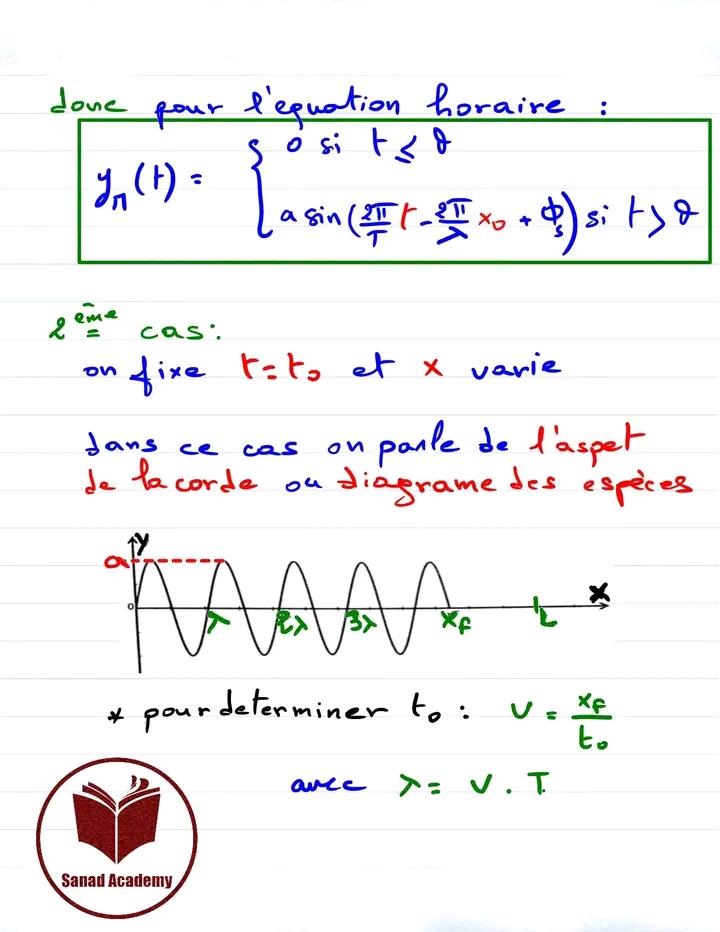 donc pour l'équation horaire :
y_M(t) = { 0 si t ≤ θ
a sin(2π/T t - 2π/λ x₀ + ϕₛ) si t > θ
2ème cas:
on fixe t=t₀ et x varie
dans ce cas on parle de l'aspet
de la corde ou diagrame des espèces
y
a
0 λ 2λ 3λ x_F L x
* pour determiner t₀ : V = x_F/t₀
avec λ = V . T
Sanad Academy